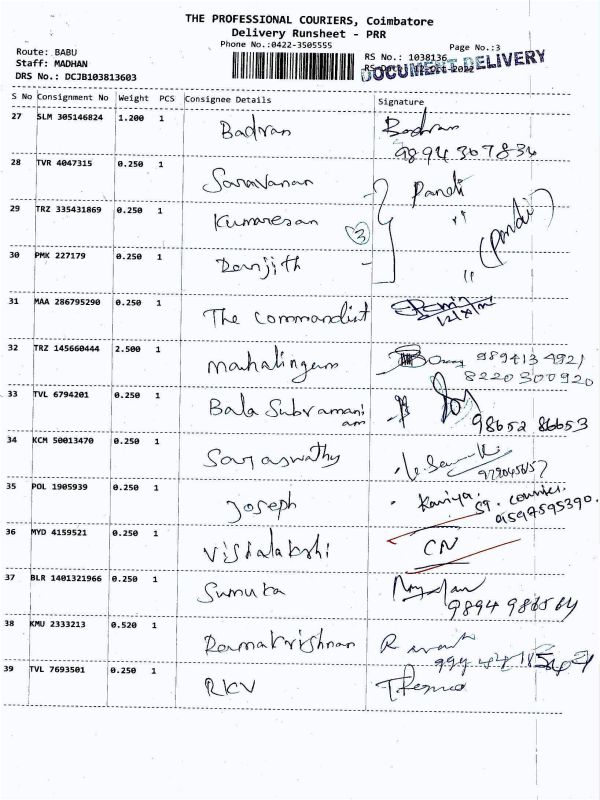 THE PROFESSIONAL COURIERS, Coimbatore
Delivery Runsheet - PRR
Phone No.:0422-3505555
Page No.:3
Route: BABU
RS No.: 1038136
Staff: MADHAN
RS Date: 12-Oct-2022
DOCUMENT DELIVERY
DRS No.: DCJB103813603
S No Consignment No Weight PCS Consignee Details Signature
27 SLM 305146824 1.200 1 Badran Badran
9894 367834
28 TVR 4047315 0.250 1 Saravanan Pandi
29 TRZ 335431869 0.250 1 Kumaresan " (Pandi)
3
30 PMK 227179 0.250 1 Ranjith "
31 MAA 286795290 0.250 1 The commandist
32 TRZ 145660444 2.500 1 mahalingam 989413 4921
8220300920
33 TVL 6794201 0.250 1 Bala Subramani
am 98652 86653
34 KCM 50013470 0.250 1 Saraswathy
35 POL 1905939 0.250 1 Joseph Kaniya.
ST. Courier
9597595390.
36 MYD 4159521 0.250 1 Vishalakshi CN
37 BLR 1401321966 0.250 1 Sumuka
38 KMU 2333213 0.520 1 Ramakrishnan
39 TVL 7693501 0.250 1 RKV